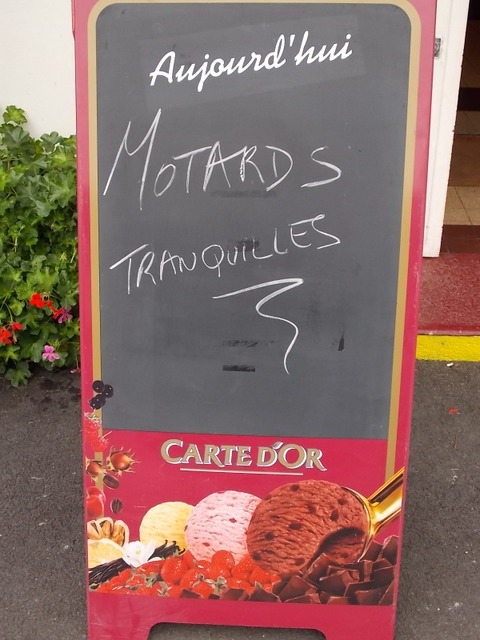 Aujourd'hui
MOTARDS
TRANQUILLES
CARTE D'OR